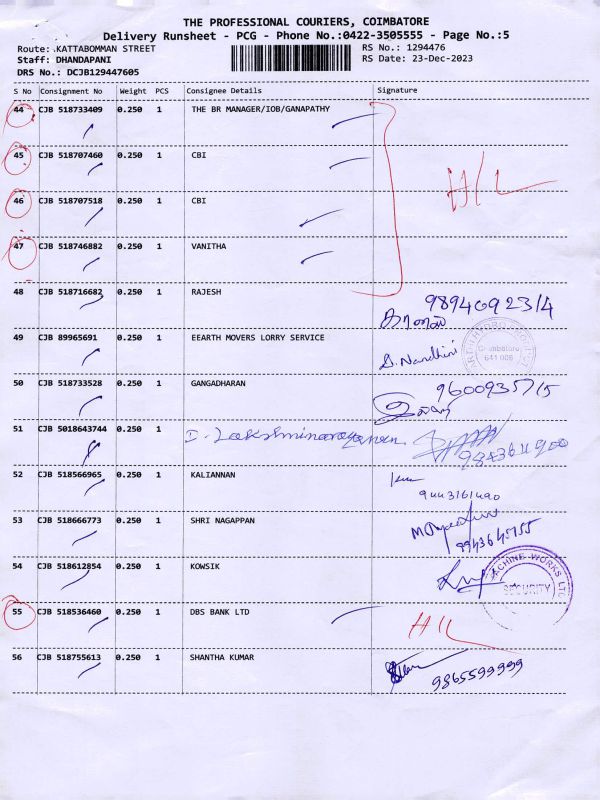 THE PROFESSIONAL COURIERS, COIMBATORE
Delivery Runsheet - PCG - Phone No.:0422-3505555 - Page No.:5
Route: KATTABOMMAN STREET
RS No.: 1294476
Staff: DHANDAPANI
RS Date: 23-Dec-2023
DRS No.: DCJB129447605
S No Consignment No Weight PCS Consignee Details Signature
44 CJB 518733409 0.250 1 THE BR MANAGER/IOB/GANAPATHY
45 CJB 518707460 0.250 1 CBI
46 CJB 518707518 0.250 1 CBI
47 CJB 518746882 0.250 1 VANITHA
48 CJB 518716682 0.250 1 RAJESH
49 CJB 89965691 0.250 1 EEARTH MOVERS LORRY SERVICE S. Nandhini
Coimbatore
641 006
50 CJB 518733528 0.250 1 GANGADHARAN 9600935715
51 CJB 5018643744 0.250 1 D. Lakshminarayanan
52 CJB 518566965 0.250 1 KALIANNAN
9443161490
53 CJB 518666773 0.250 1 SHRI NAGAPPAN
54 CJB 518612854 0.250 1 KOWSIK
MACHINE WORKS LTD
SECURITY
55 CJB 518536460 0.250 1 DBS BANK LTD
56 CJB 518755613 0.250 1 SHANTHA KUMAR
9865599999